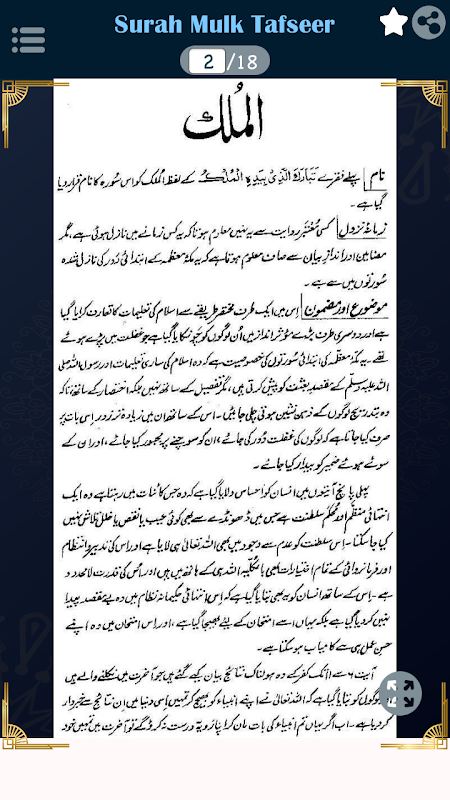 Surah Mulk Tafseer
2/18
المُلک
نام پہلے فقرے تَبَارَكَ الَّذِیْ بِیَدِہِ الْمُلْکُ کے لفظ المُلک کو اس سُورہ کا نام قرار دیا
گیا ہے۔
زمانۂ نزول کسی مُعتَبر روایت سے یہ نہیں معلوم ہوتا کہ یہ کس زمانے میں نازل ہوئی ہے، مگر
مضامین اور اندازِ بیان سے صاف معلوم ہوتا ہے کہ یہ مکۂ معظمہ کے ابتدائی دَور کی نازل شدہ
سُورتوں میں سے ہے۔
موضوع اور مضمون اِس میں ایک طرف مختصر طریقے سے اسلام کی تعلیمات کا تعارف کرایا گیا
ہے اور دوسری طرف بڑے مؤثر انداز میں اُن لوگوں کو چَونکایا گیا ہے جو غفلت میں پڑے ہوئے
تھے۔ یہ مکۂ معظمہ کی ابتدائی سُورتوں کی خصوصیت ہے کہ وہ اسلام کی ساری تعلیمات اور رسول اللہ صلی
اللہ علیہ وسلم کے مقصدِ بعثت کو پیش کرتی ہیں، مگر تفصیل کے ساتھ نہیں بلکہ اختصار کے ساتھ، تاکہ
وہ بتدریج لوگوں کے ذہن نشین ہوتی چلی جائیں۔ اس کے ساتھ ان میں زیادہ تر زور اِس بات پر
صرف کیا جاتا ہے کہ لوگوں کی غفلت دُور کی جائے، ان کو سوچنے پر مجبور کیا جائے، اور ان کے
سوئے ہوئے ضمیر کو بیدار کیا جائے۔
پہلی پانچ آیتوں میں انسان کو احساس دلایا گیا ہے کہ وہ جس کائنات میں رہتا ہے وہ ایک
انتہائی منظّم اور مُحکم سلطنت ہے جس میں ڈھونڈے سے بھی کوئی عیب یا نقص یا خلل تلاش نہیں
کیا جا سکتا۔ اِس سلطنت کو عدم سے وجود میں بھی اللہ تعالیٰ ہی لایا ہے اور اس کی تدبیر و انتظام
اور فرمانروائی کے تمام اختیارات بھی بالکلیہ اللہ ہی کے ہاتھ میں ہیں اور اُس کی قدرت لامحدود
ہے۔ اِس کے ساتھ انسان کو یہ بھی بتایا گیا ہے کہ اِس انتہائی حکیمانہ نظام میں وہ بے مقصد پیدا
نہیں کر دیا گیا ہے بلکہ یہاں اسے امتحان کے لیے بھیجا گیا ہے، اور اِس امتحان میں وہ اپنے
حسنِ عمل ہی سے کامیاب ہو سکتا ہے۔
آیت ۶ سے ۱۱ تک کفر کے وہ ہولناک نتائج بیان کیے گئے ہیں جو آخرت میں نکلنے والے ہیں
لوگوں کو بتایا گیا ہے کہ اللہ تعالیٰ نے اپنے انبیاء کو بھیج کر تمہیں اِسی دنیا میں اِن نتائج سے خبردار
کر دیا ہے۔ اب اگر یہاں تم انبیاء کی بات مان کر اپنا رویہ درست نہ کرو گے تو آخرت میں تمہیں خود